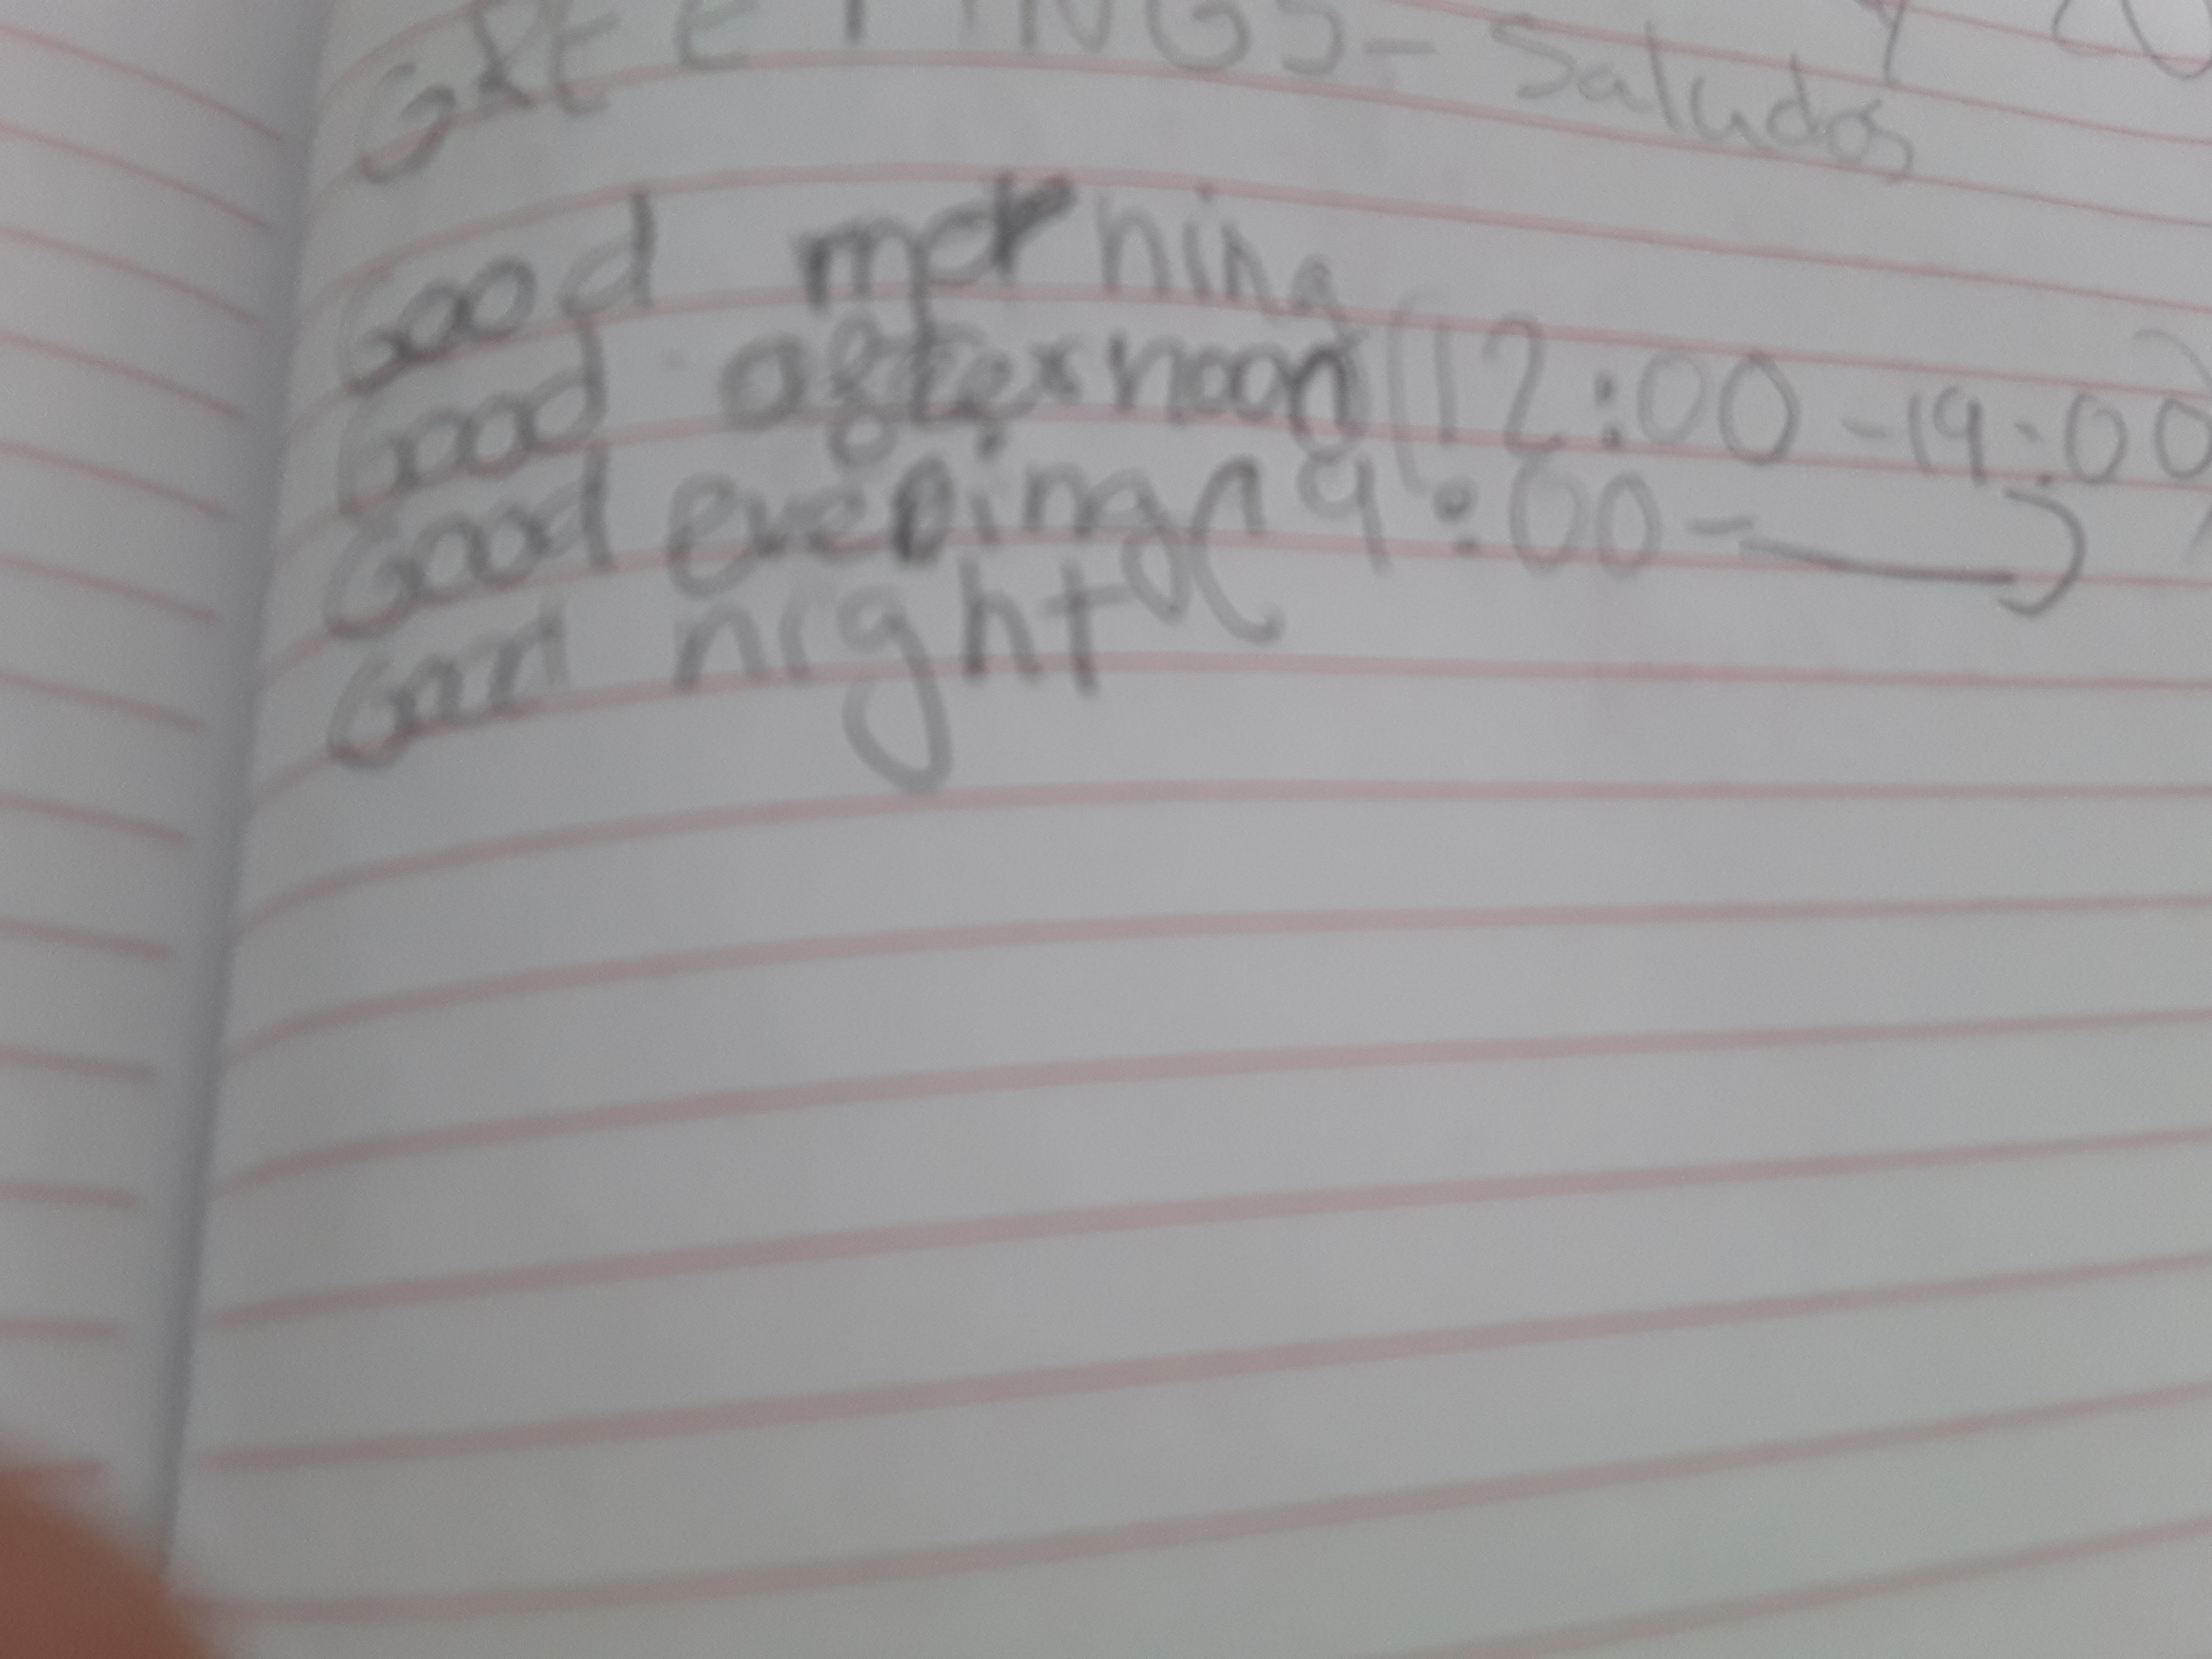 GREETINGS - Saludos
Good morning
Good afternoon (12:00 - 19:00)
Good evening (19:00 - )
Good night